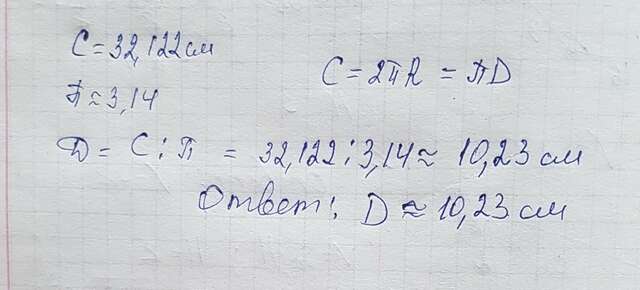 C = 32,122 см
π ≈ 3,14
C = 2πR = πD
D = C : π = 32,122 : 3,14 ≈ 10,23 см
Ответ: D ≈ 10,23 см